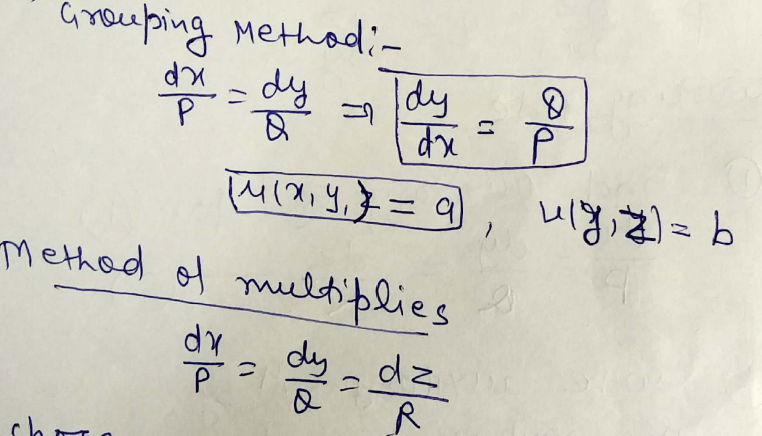 Grouping Method:-
dx/P = dy/Q ⇒ dy/dx = Q/P
u(x, y, z = a , u(y, z) = b
Method of multiplies
dx/P = dy/Q = dz/R